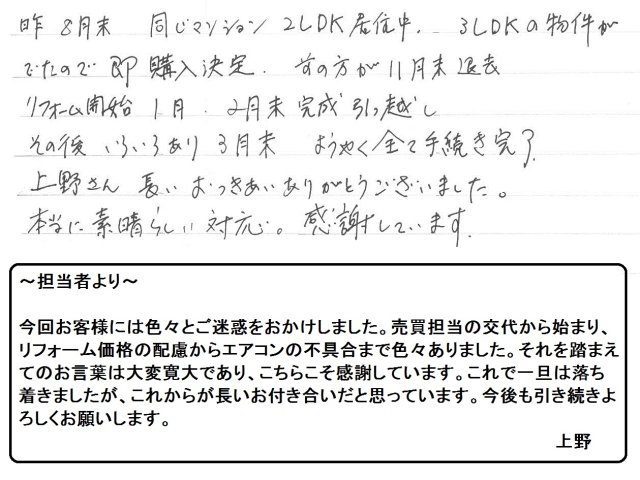 昨8月末 同じマンション 2LDK居住中. 3LDKの物件が
でたので 即購入決定. 前の方が11月末退去
リフォーム開始 1月. 2月末完成 引っ越し
その後 いろいろあり 3月末 ようやく全て手続き完了.
上野さん 長いおつきあいありがとうございました。
本当に素晴らしい対応。感謝しています.
～担当者より～
今回お客様には色々とご迷惑をおかけしました。売買担当の交代から始まり、
リフォーム価格の配慮からエアコンの不具合まで色々ありました。それを踏まえ
てのお言葉は大変寛大であり、こちらこそ感謝しています。これで一旦は落ち
着きましたが、これからが長いお付き合いだと思っています。今後も引き続きよ
ろしくお願いします。
上野